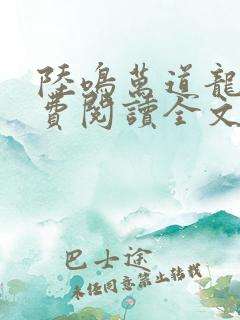 陸鳴萬道龍
費閱讀全文
巴士途
未經同意禁止轉載